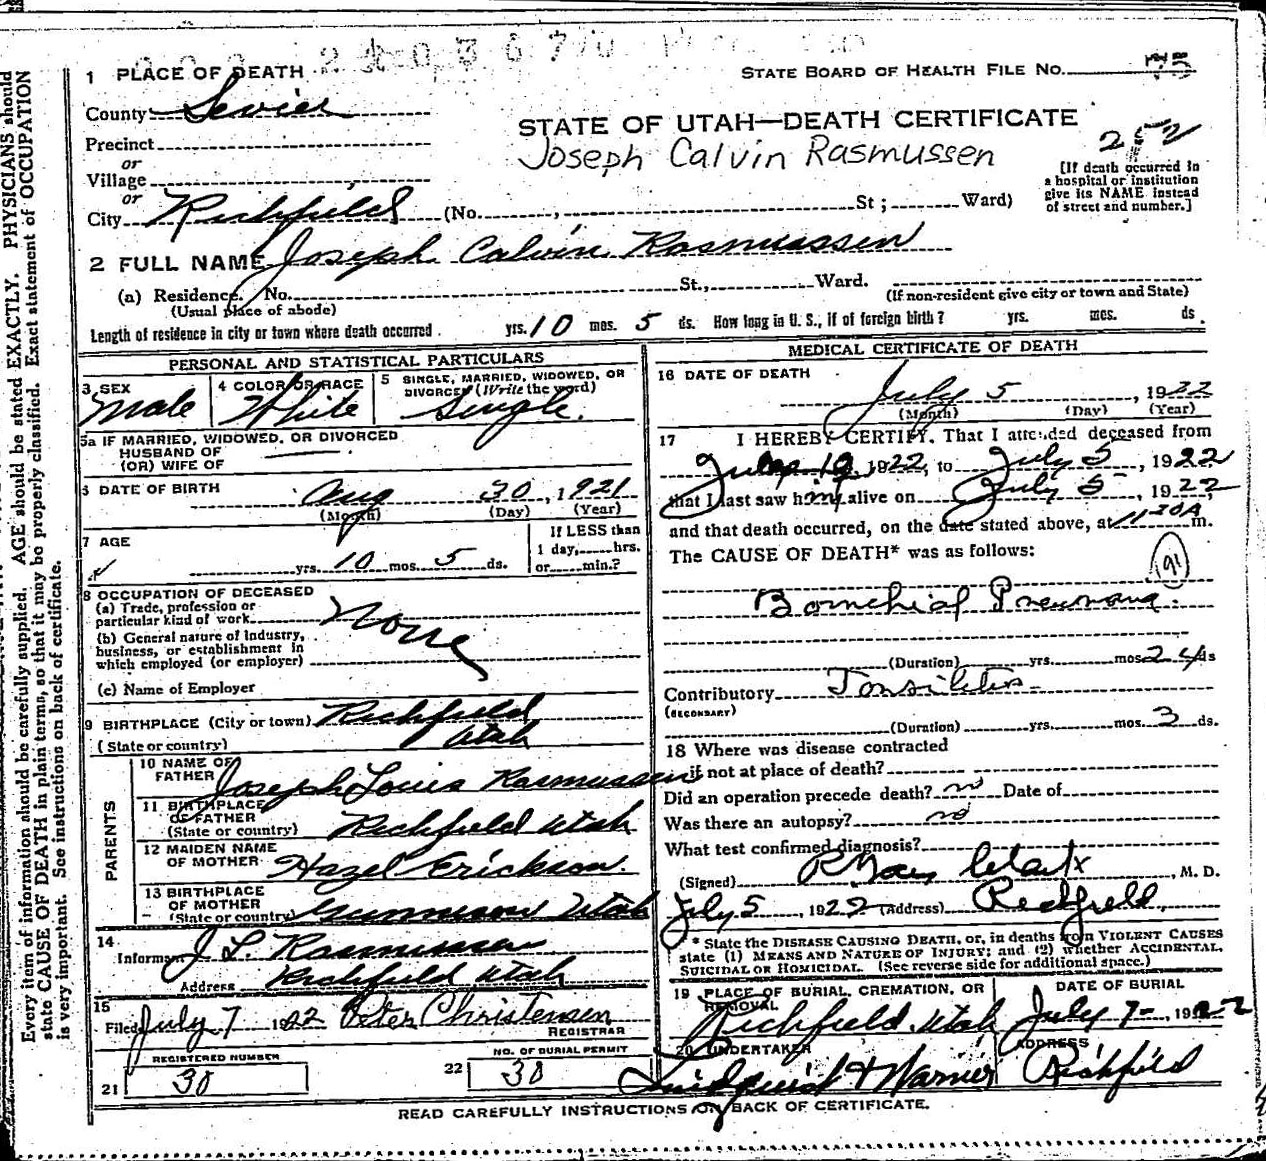 1 PLACE OF DEATH
STATE BOARD OF HEALTH FILE NO. 75
County Sevier
STATE OF UTAH—DEATH CERTIFICATE
Precinct
Joseph Calvin Rasmussen
252
or
Village
[If death occurred in
a hospital or institution
give its NAME instead
of street and number.]
or
City Richfield (No. , St ; Ward)
2 FULL NAME Joseph Calvin Rasmussen
(a) Residence. No. St., Ward.
(Usual place of abode)
(If non-resident give city or town and State)
Length of residence in city or town where death occurred. yrs. 10 mos. 5 ds. How long in U. S., if of foreign birth? yrs. mos. ds.
PERSONAL AND STATISTICAL PARTICULARS
3 SEX
Male
4 COLOR OR RACE
White
5 SINGLE, MARRIED, WIDOWED, OR
DIVORCED (Write the word)
Single.
5a IF MARRIED, WIDOWED, OR DIVORCED
HUSBAND OF
(OR) WIFE OF
6 DATE OF BIRTH
Aug 30, 1921
(Month) (Day) (Year)
7 AGE
yrs. 10 mos. 5 ds.
If LESS than
1 day, hrs.
or min.?
8 OCCUPATION OF DECEASED
(a) Trade, profession or
particular kind of work None
(b) General nature of industry,
business, or establishment in
which employed (or employer)
(c) Name of Employer
9 BIRTHPLACE (City or town) Richfield
(State or country) Utah
PARENTS
10 NAME OF
FATHER Joseph Louis Rasmussen
11 BIRTHPLACE
OF FATHER
(State or country) Richfield Utah
12 MAIDEN NAME
OF MOTHER Hazel Erickson.
13 BIRTHPLACE
OF MOTHER
(State or country) Gunnison Utah
14
Informant J L Rasmussen
Address Richfield Utah
15
Filed July 7 1922 Peter Christensen
REGISTRAR
REGISTERED NUMBER
21 30
NO. OF BURIAL PERMIT
22 30
MEDICAL CERTIFICATE OF DEATH
16 DATE OF DEATH
July 5, 1922
(Month) (Day) (Year)
17 I HEREBY CERTIFY, That I attended deceased from
19, 1922, to July 5, 1922
that I last saw him alive on July 5, 1922,
and that death occurred, on the date stated above, at 11 30 A m.
The CAUSE OF DEATH* was as follows:
91
Bornchial Pneumona.
(Duration) yrs. mos. 24 ds
Contributory Tonsilitis
(SECONDARY)
(Duration) yrs. mos. 3 ds.
18 Where was disease contracted
if not at place of death?
Did an operation precede death? no Date of
Was there an autopsy? no
What test confirmed diagnosis?
(Signed) , M. D.
July 5, 1922 (Address) Richfield.
* State the DISEASE CAUSING DEATH, or, in deaths from VIOLENT CAUSES
state (1) MEANS AND NATURE OF INJURY; and (2) whether ACCIDENTAL,
SUICIDAL OR HOMICIDAL. (See reverse side for additional space.)
19 PLACE OF BURIAL, CREMATION, OR
REMOVAL
Richfield, Utah
DATE OF BURIAL
July 7- 1922
20 UNDERTAKER
Lindquist & Warner
ADDRESS
Richfield
READ CAREFULLY INSTRUCTIONS ON BACK OF CERTIFICATE.
Every item of information should be carefully supplied. AGE should be stated EXACTLY. PHYSICIANS should
state CAUSE OF DEATH in plain terms, so that it may be properly classified. Exact statement of OCCUPATION
is very important. See instructions on back of certificate.